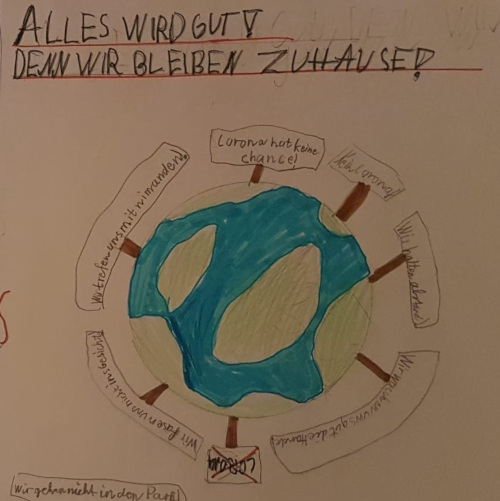 ALLES WIRD GUT!
DENN WIR BLEIBEN ZUHAUSE!
Corona hat keine
chance!
Kein Corona
Wir halten abstand!
Wir waschen uns gut die Hände!
CORONA
Wir fasen uns nicht ins Gesicht
Wir trefen uns mit nimanden!
Wir gehen nicht in den Park!